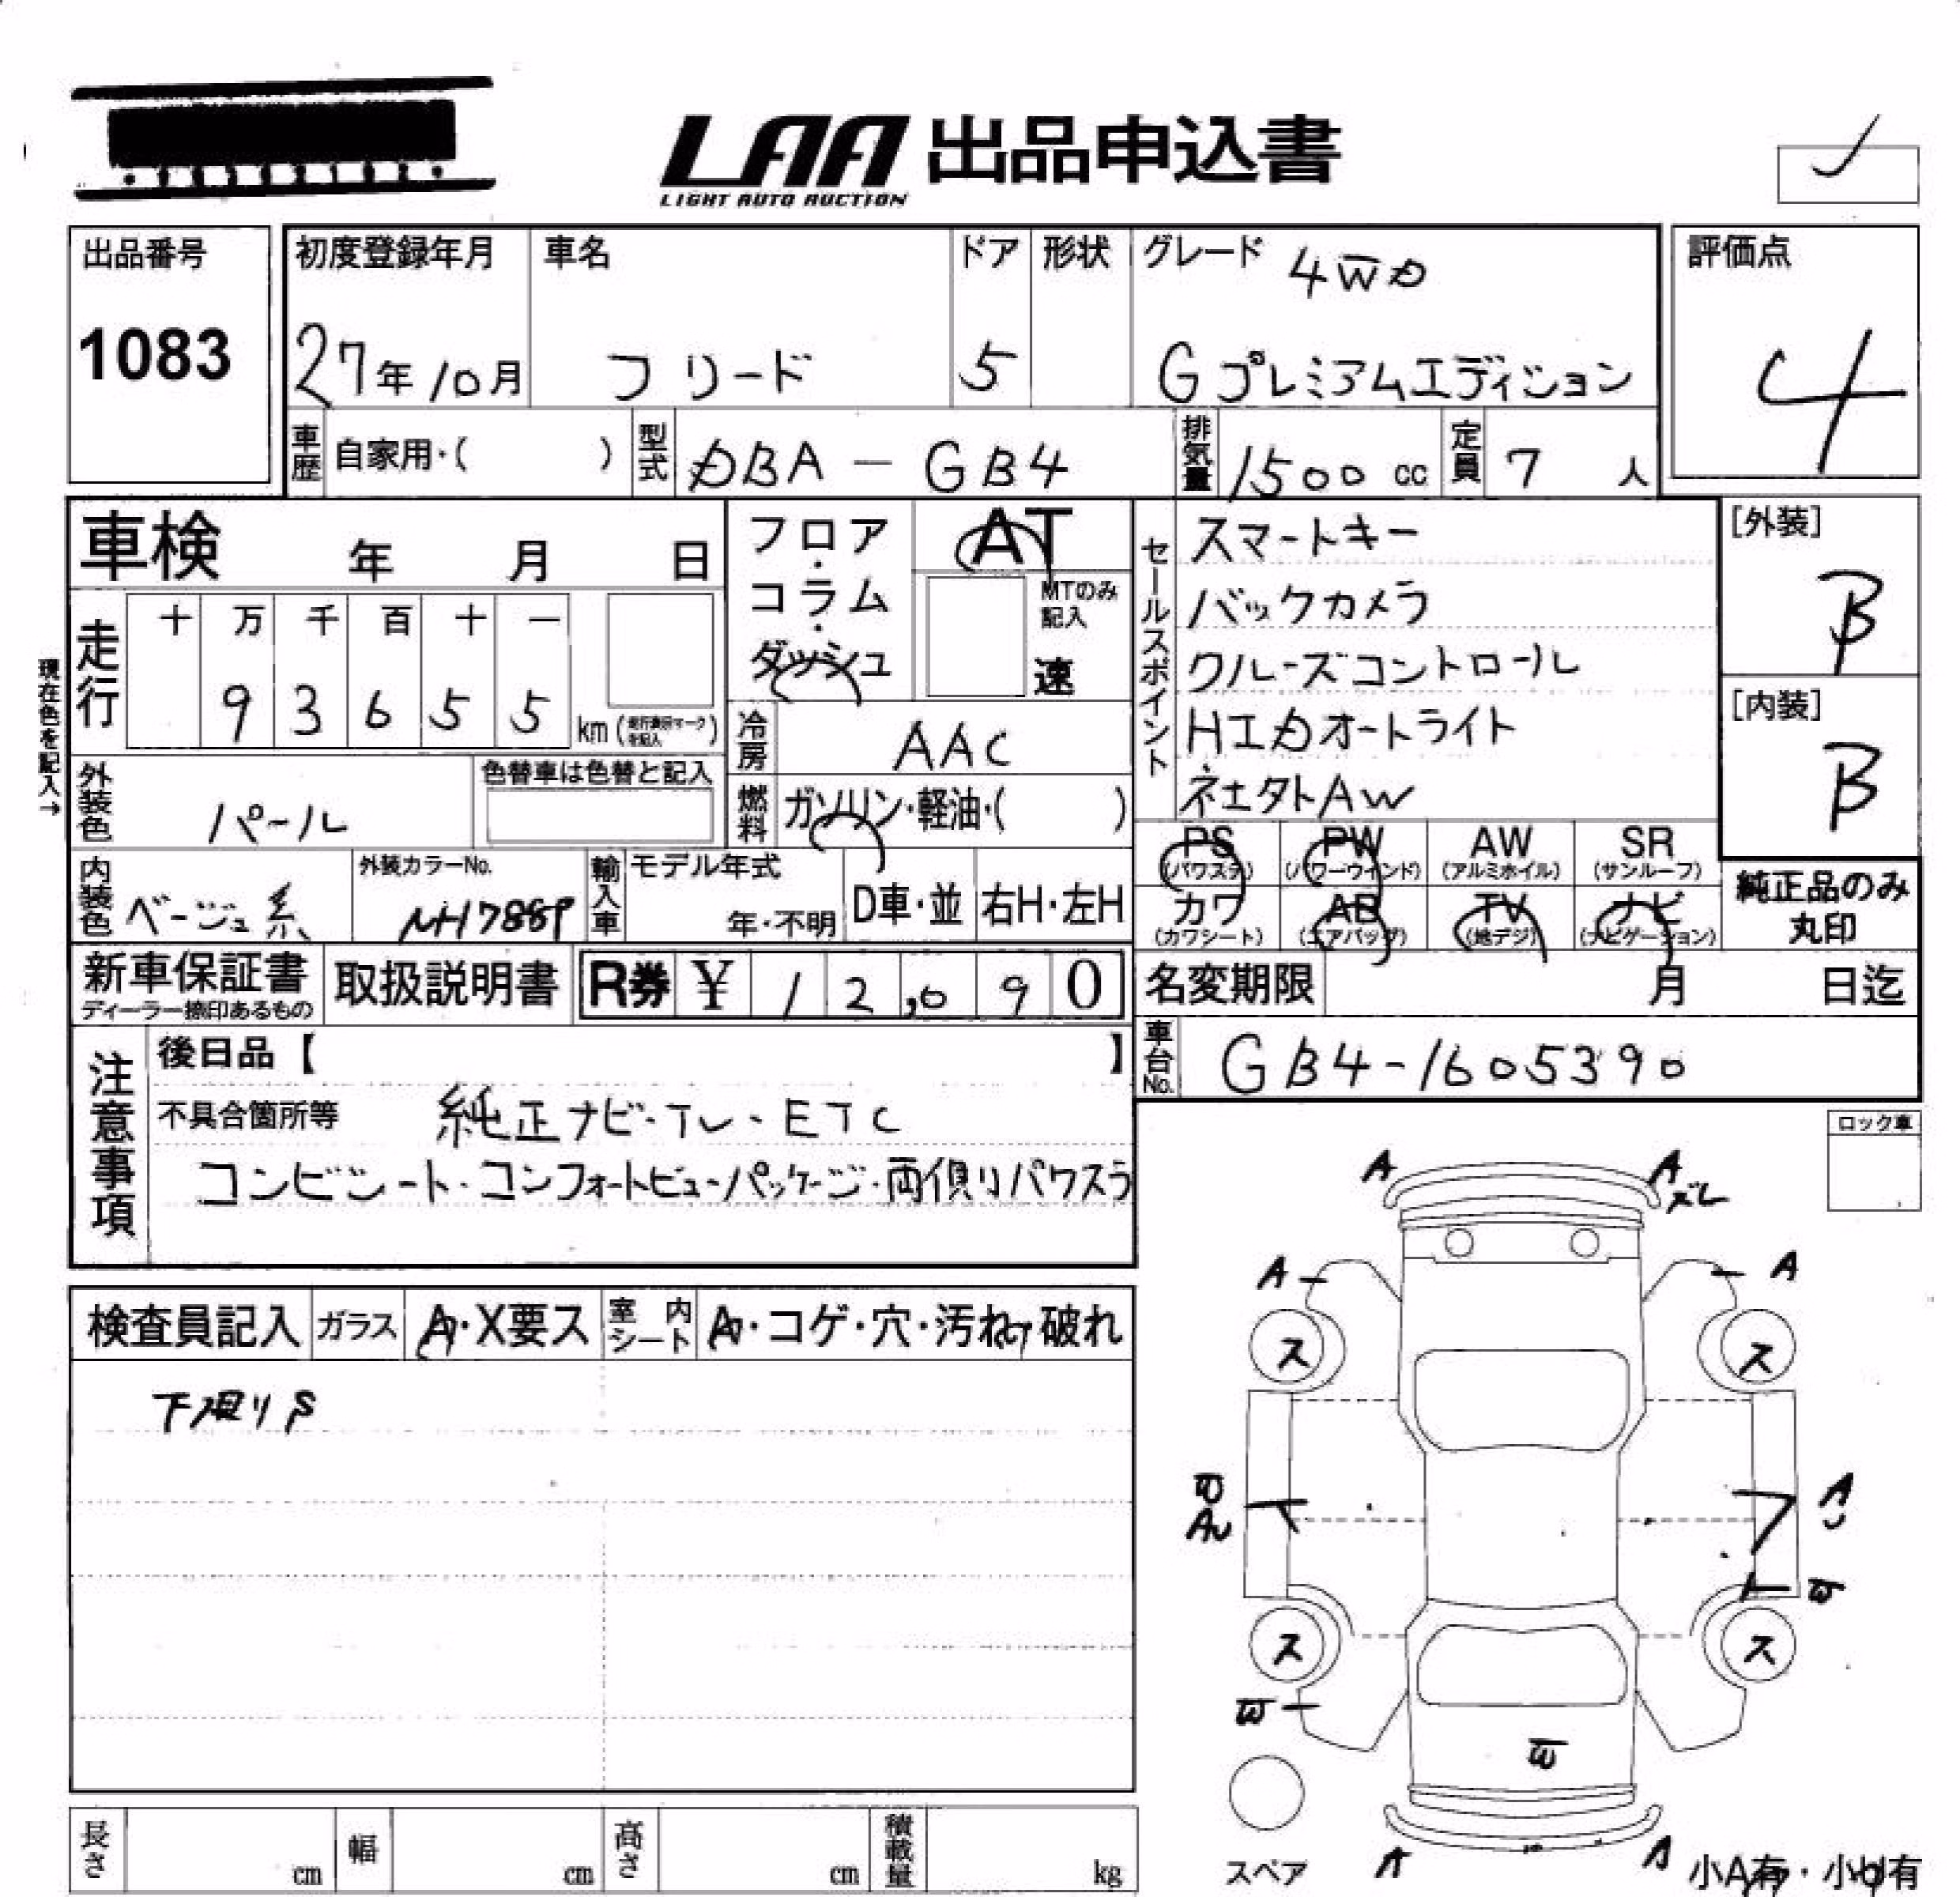 LAA 出品申込書
LIGHT AUTO AUCTION
出品番号
1083
初度登録年月
27年10月
車名
フリード
ドア
5
形状
グレード 4WD
Gプレミアムエディション
評価点
4
車歴 自家用・( )
型式 DBA-GB4
排気量 1500 cc
定員 7 人
車検 年 月 日
フロア・コラム・ダッシュ
AT
MTのみ記入
速
セールスポイント
スマートキー
バックカメラ
クルーズコントロール
HIDオートライト
社外AW
[外装]
B
[内装]
B
現在色を記入→
走行
十 万 千 百 十 一
9 3 6 5 5 km
冷房 AAC
外装色 パール
色替車は色替と記入
燃料 ガソリン・軽油・( )
内装色 ベージュ系
外装カラーNo.
NH788P
輸入車 モデル年式
年・不明
D車・並 右H・左H
PS (パワステ)
PW (パワーウィンド)
AW (アルミホイル)
SR (サンルーフ)
カワ (カワシート)
AB (エアバッグ)
TV (地デジ)
ナビ (ナビゲーション)
純正品のみ
丸印
新車保証書
ディーラー捺印あるもの
取扱説明書
R券 ¥ 12,090
名変期限 月 日迄
車台No. GB4-1605390
注意事項
後日品【 】
不具合箇所等 純正ナビ・TV・ETC
コンビシート・コンフォートビューパッケージ・両側リパワスラ
ロック車
検査員記入
ガラス A・X要ス
室内シート A・コゲ・穴・汚れ・破れ
下廻りS
A A
ズレ
A A
ス ス
W
AU
A
U
W
ス ス
W
W
A A
スペア
小A有・小U有
長さ cm
幅 cm
高さ cm
積載量 kg